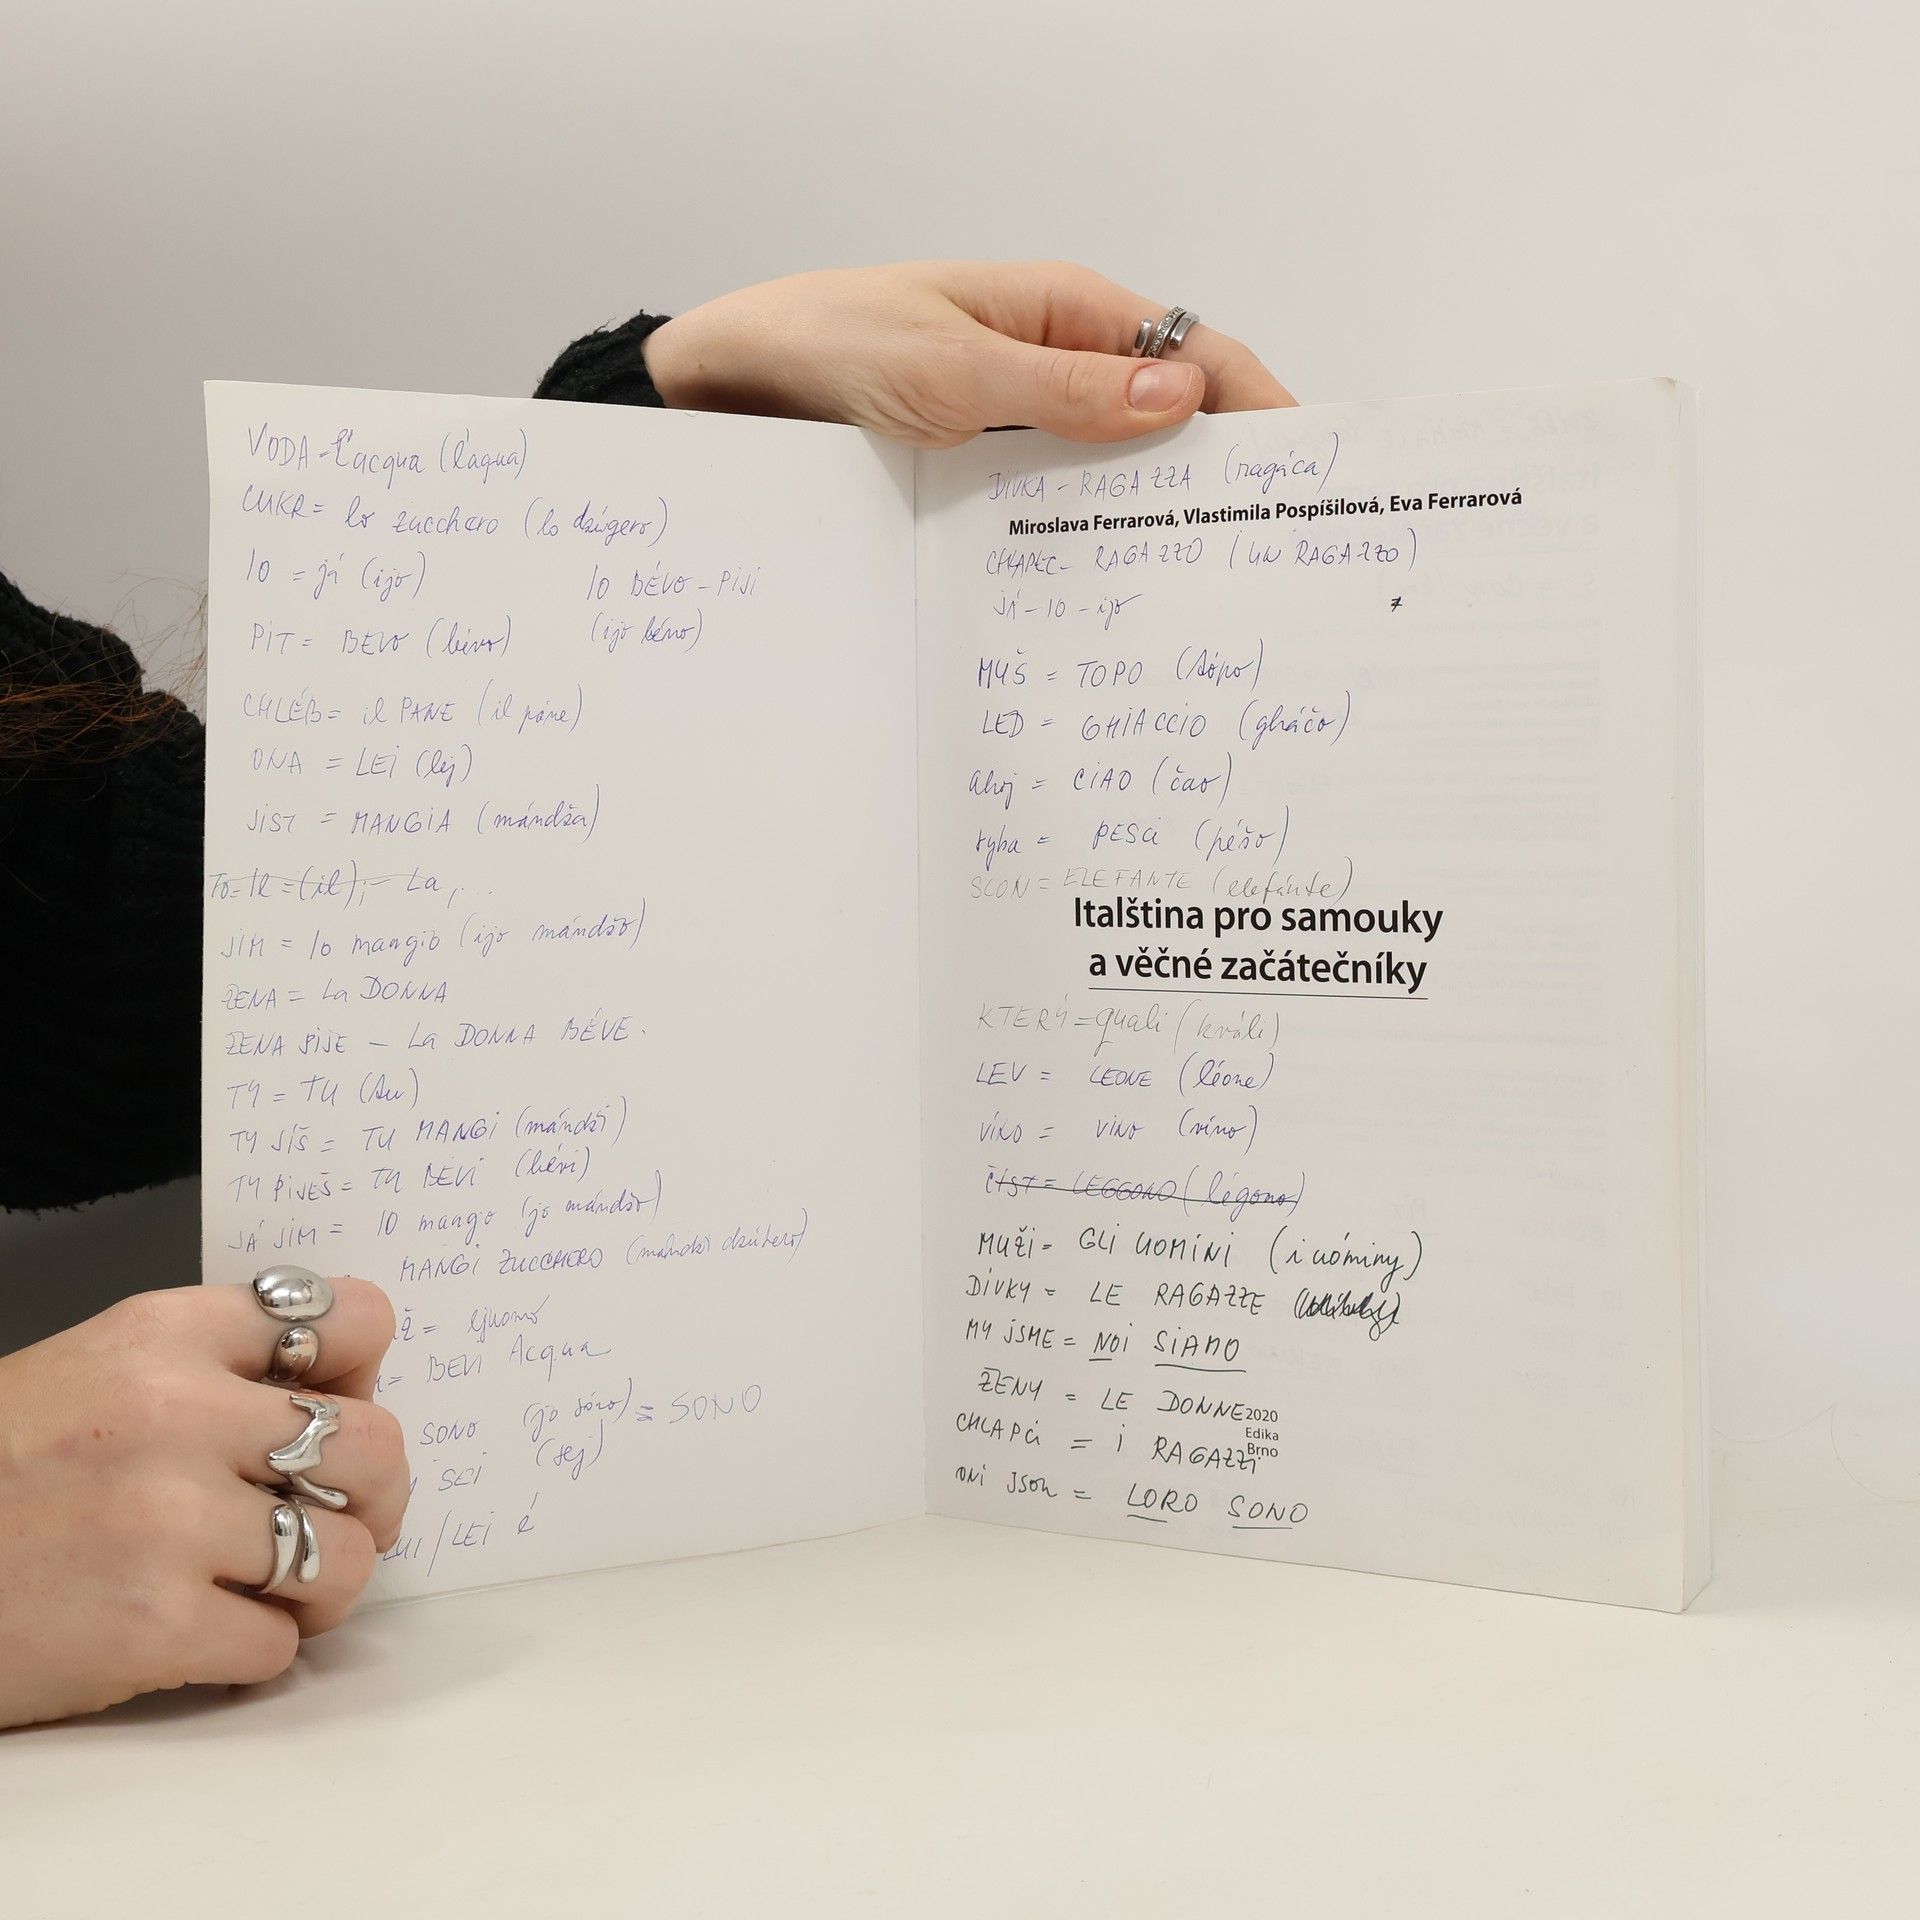 VODA = l'acqua (l'aqua)
CUKR = lo zucchero (lo dzúgero)
IO = já (ijo)
IO BÉVO - PIJI
PÍT = BEVO (bévo)
(ijo bévo)
CHLÉB = il PANE (il páne)
ONA = LEI (lej)
JÍST = MANGIA (mándža)
To = Il = (il); - La, . .
JÍM = Io mangio (ijo mándžo)
ŽENA = La DONNA
ŽENA PIJE - La DONNA BÉVE.
TY = TU (tu)
TY JÍŠ = TU MANGI (mándži)
TY PIJEŠ = TU BEVI (bévi)
JÁ JÍM = IO mango (jo mándžo)
MANGI ZUCCHERO (mándži dzúkero)
Ž = ljuomo
= BEVI Acqua
SONO (jo sóno) = SONO
SEI (sej)
LUI/LEI é
DÍVKA - RAGAZZA (ragáca)
Miroslava Ferrarová, Vlastimila Pospíšilová, Eva Ferrarová
CHLAPEC - RAGAZZO (UN RAGAZZO)
JÁ - IO - ijo
MYŠ = TOPO (tópo)
LED = GHIACCIO (gháčo)
Ahoj = CIAO (čao)
ryba = PESCI (péšo)
SLON = ELEFANTE (elefánte)
Italština pro samouky
a věčné začátečníky
KTERÝ = quali (kváli)
LEV = LEONE (léone)
VÍNO = VINO (víno)
ČÍST = LEGGONO (légono)
MUŽI = GLI UOMINI (i uóminy)
DÍVKY = LE RAGAZZE
MY JSME = NOI SIAMO
ŽENY = LE DONNE
2020
Edika
Brno
CHLAPCI = I RAGAZZI
ONI JSOU = LORO SONO